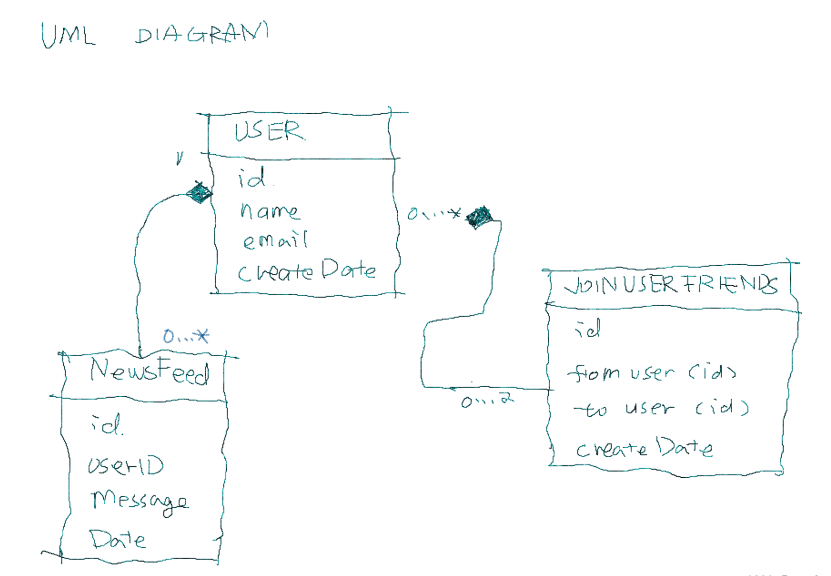 UML DIAGRAM
USER
id
name
email
createDate
0...*
0...*
NewsFeed
id.
userID
Message
Date
JOINUSERFRIENDS
id
from user (id)
to user (id)
createDate
0...2